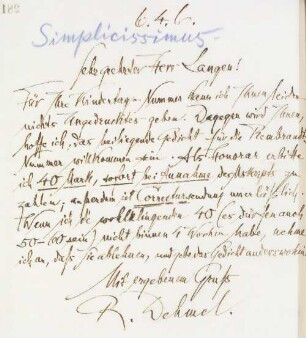 182
6.4.6.
Simplicissimus.
Sehr geehrter Herr Langen!
Für Ihre Kindertag-Nummer kann ich Ihnen leider
nichts Ungedrucktes geben. Dagegen wird Ihnen,
hoffe ich, das beiliegende Gedicht für die Rembrandt-
Nummer willkommen sein. Als Honorar erbitte
ich 40 Mark, sofort bei Annahme des Mskripts zu
zahlen; außerdem ist Correctursendung unerläßlich.
Wenn ich die wohlklingenden 40 (es dürfen auch
50-60 sein) nicht binnen 4 Wochen habe, nehme
ich an, daß Sie ablehnen, und gebe das Gedicht anderswohin.
Mit ergebenem Gruß
R. Dehmel.